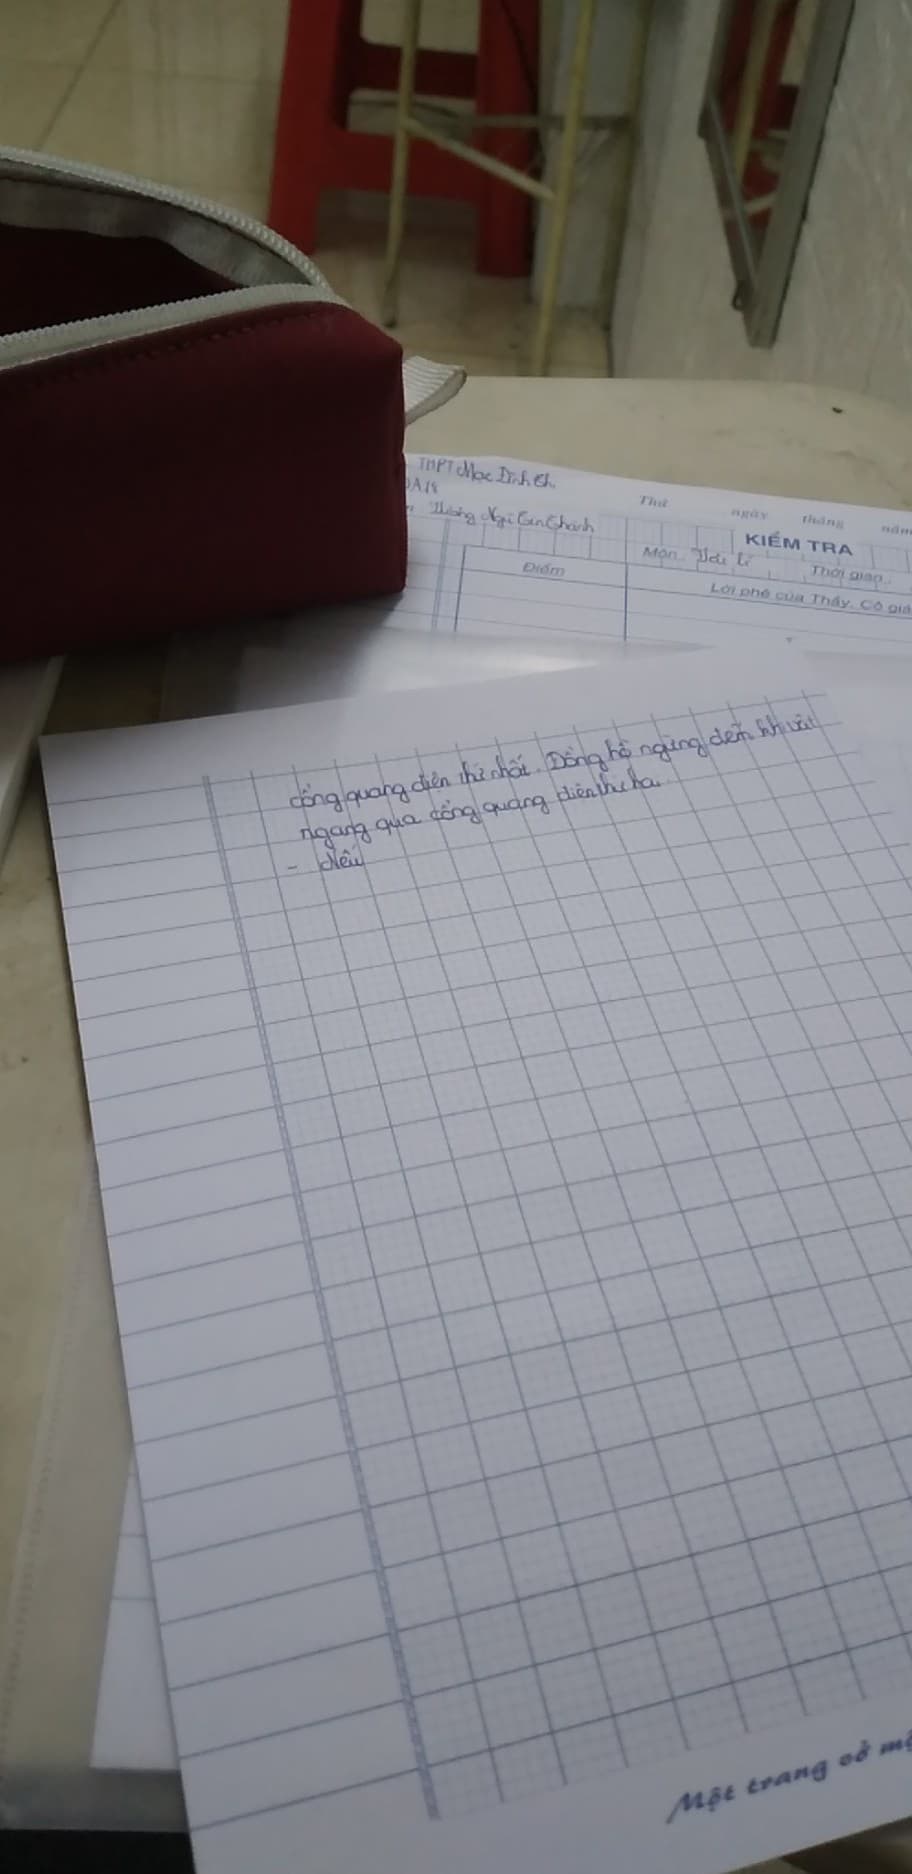 THPT Mạc Đĩnh Ch
A18
Thứ ngày tháng năm
KIỂM TRA
Môn Thời gian
Điểm
Lời phê của Thầy, Cô giá
cổng quang điện thứ nhất. Đồng hồ ngừng đếm khi vật
ngang qua cổng quang điện thứ hai.
- Nếu
Một trang vở mớ